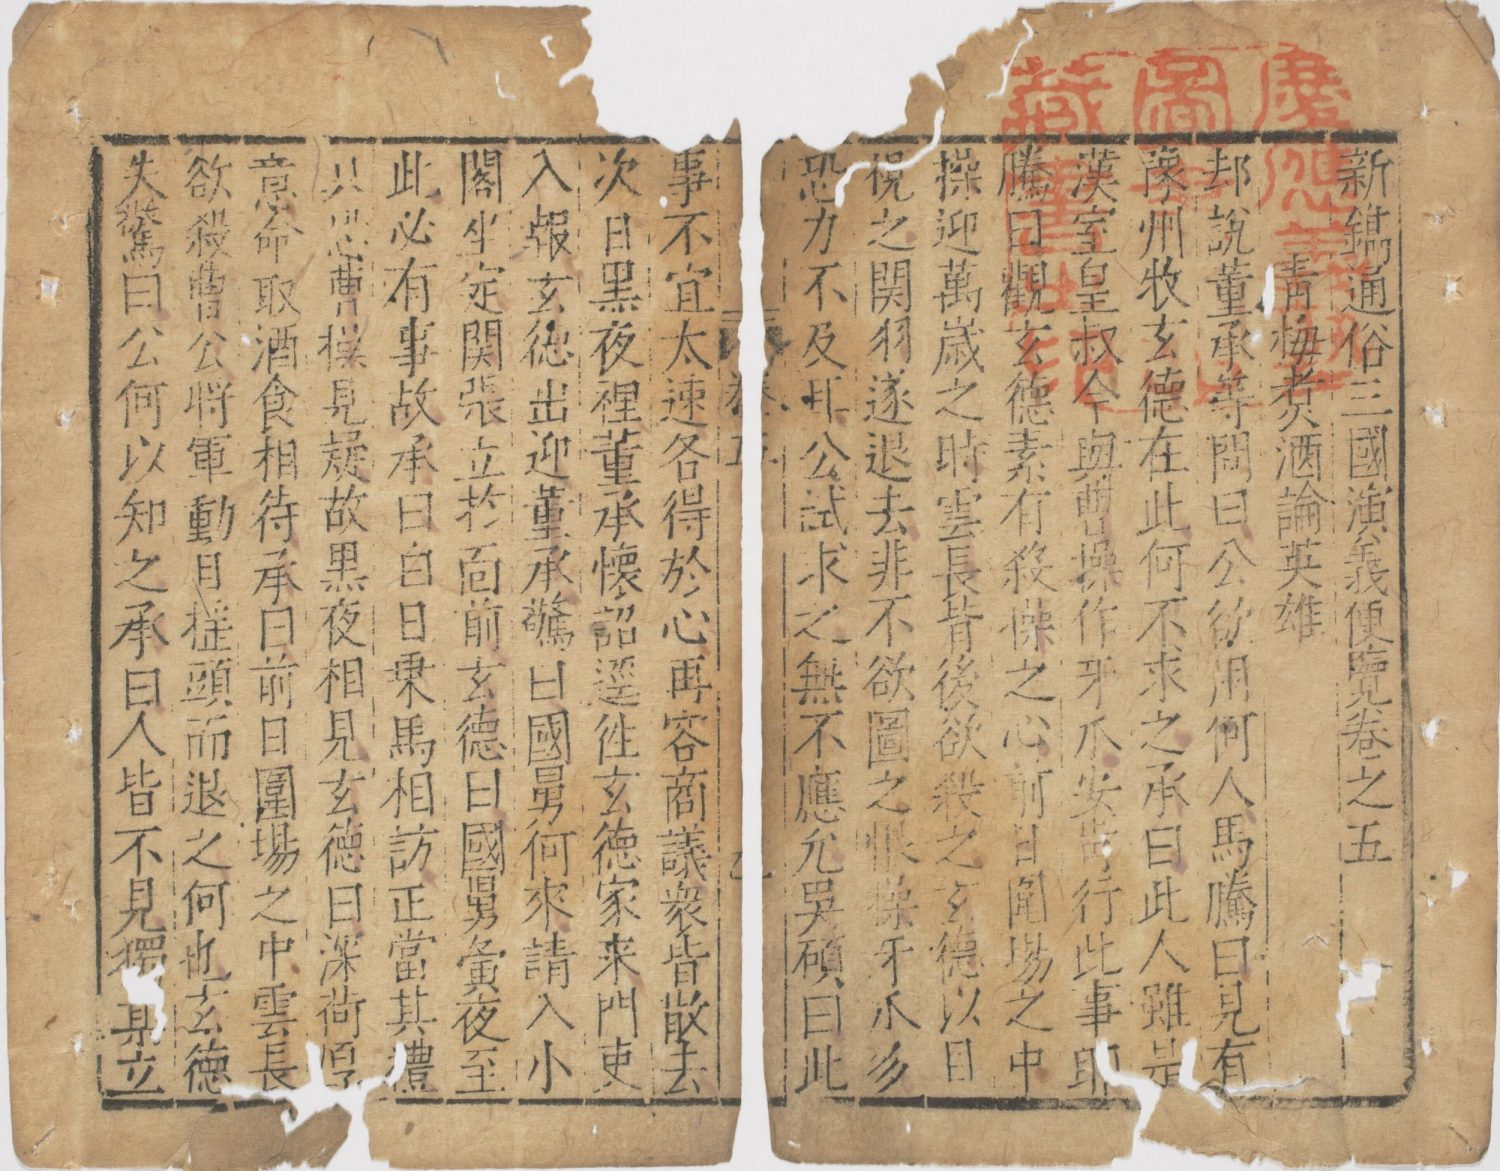 新鐫通俗三國演義便覽卷之五
青梅煮酒論英雄
却說董承等問曰公欲用何人馬騰曰見有
豫州牧玄德在此何不求之承曰此人雖是
漢室皇叔今與曹操作牙爪安肯行此事耶
騰曰觀玄德素有殺操之心前日圍場之中
操迎萬歲之時雲長背後欲殺之玄德以目
視之関羽遂退去非不欲圖之恨操牙爪多
恐力不及耳公試求之無不應允吳碩曰此
卷五
事不宜太速各得於心再容商議衆皆散去
次日黑夜裡董承懷詔逕徃玄德家来門吏
入報玄德出迎董承驚曰國舅何來請入小
閣坐定関張立於面前玄德曰國舅夤夜至
此必有事故承曰白日乗馬相訪正當其禮
只恐曹操見疑故黑夜相見玄德曰深荷厚
意命取酒食相待承曰前日圍場之中雲長
欲殺曹公將軍動目揺頭而退之何也玄德
失驚曰公何以知之承曰人皆不見獨某立
慶應義塾
圖書
藏書